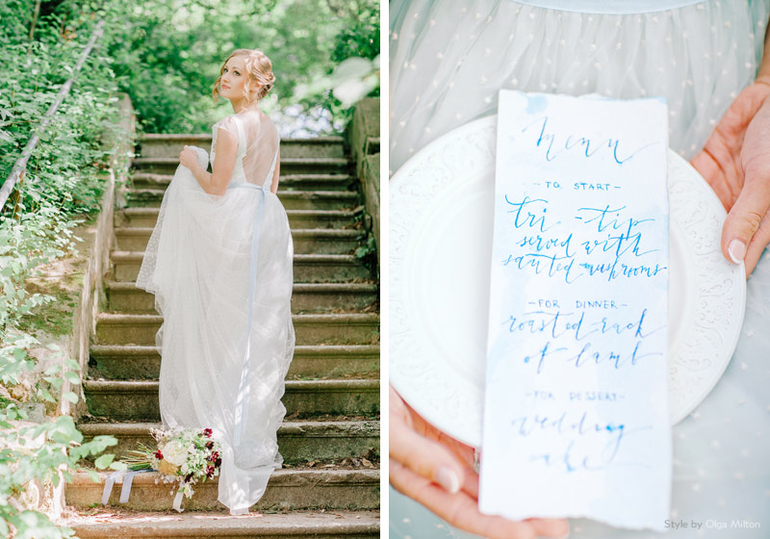 Menu
- TO START -
tri-tip
served with
sauted mushrooms
- FOR DINNER -
roasted rack
of lamb
- FOR DESSERT -
wedding
cake
Style by Olga Milton